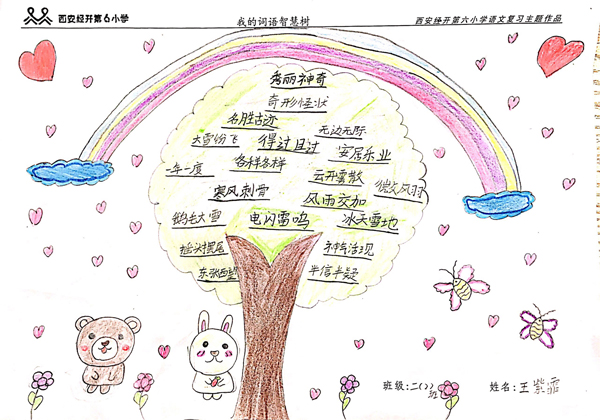 西安经开第6小学
我的词语智慧树
西安经开第六小学语文复习主题作品
秀丽神奇
奇形怪状
名胜古迹
无边无际
大雪纷飞
得过且过
安居乐业
一年一度
各种各样
云开雾散
微文风羽
寒风刺骨
风雨交加
鹅毛大雪
电闪雷鸣
冰天雪地
摇头摆尾
神气活现
东张西望
半信半疑
班级:二(2)班
姓名:王紫霏